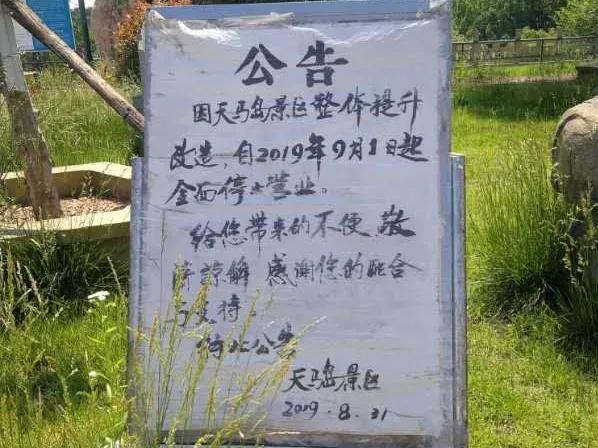 公告
因天马岛景区整体提升
改造，自2019年9月1日起
全面停止营业。
给您带来的不便，敬
请谅解 感谢您的配合
与支持。
特此公告
天马岛景区
2019.8.31